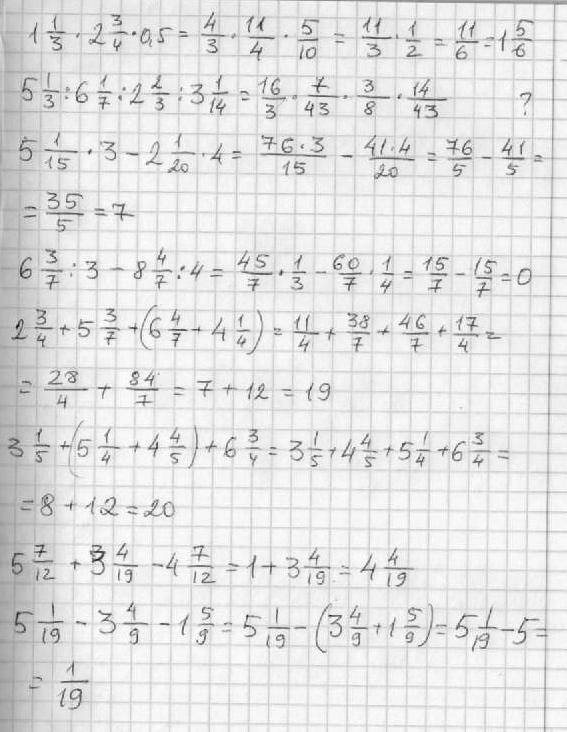 1 1/3 · 2 3/4 · 0,5 = 4/3 · 11/4 · 5/10 = 11/3 · 1/2 = 11/6 = 1 5/6
5 1/3 : 6 1/7 : 2 2/3 : 3 1/14 = 16/3 · 7/43 · 3/8 · 14/43 ?
5 1/15 · 3 - 2 1/20 · 4 = 76·3/15 - 41·4/20 = 76/5 - 41/5 =
= 35/5 = 7
6 3/7 : 3 - 8 4/7 : 4 = 45/7 · 1/3 - 60/7 · 1/4 = 15/7 - 15/7 = 0
2 3/4 + 5 3/7 + (6 4/7 + 4 1/4) = 11/4 + 38/7 + 46/7 + 17/4 =
= 28/4 + 84/7 = 7 + 12 = 19
3 1/5 + (5 1/4 + 4 4/5) + 6 3/4 = 3 1/5 + 4 4/5 + 5 1/4 + 6 3/4 =
= 8 + 12 = 20
5 7/12 + 3 4/19 - 4 7/12 = 1 + 3 4/19 = 4 4/19
5 1/19 - 3 4/9 - 1 5/9 = 5 1/19 - (3 4/9 + 1 5/9) = 5 1/19 - 5 =
= 1/19